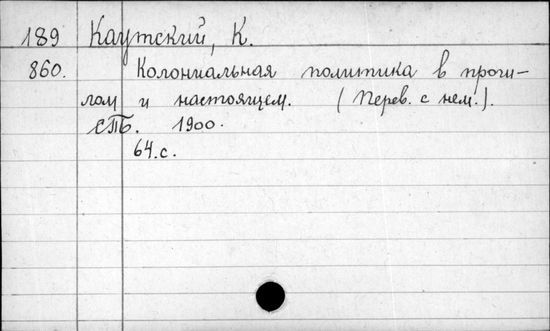 189 Каутский, К.
860. Колониальная политика в прош-
лом и настоящем. (Перев. с нем.).
СПБ. 1900.
64.с.